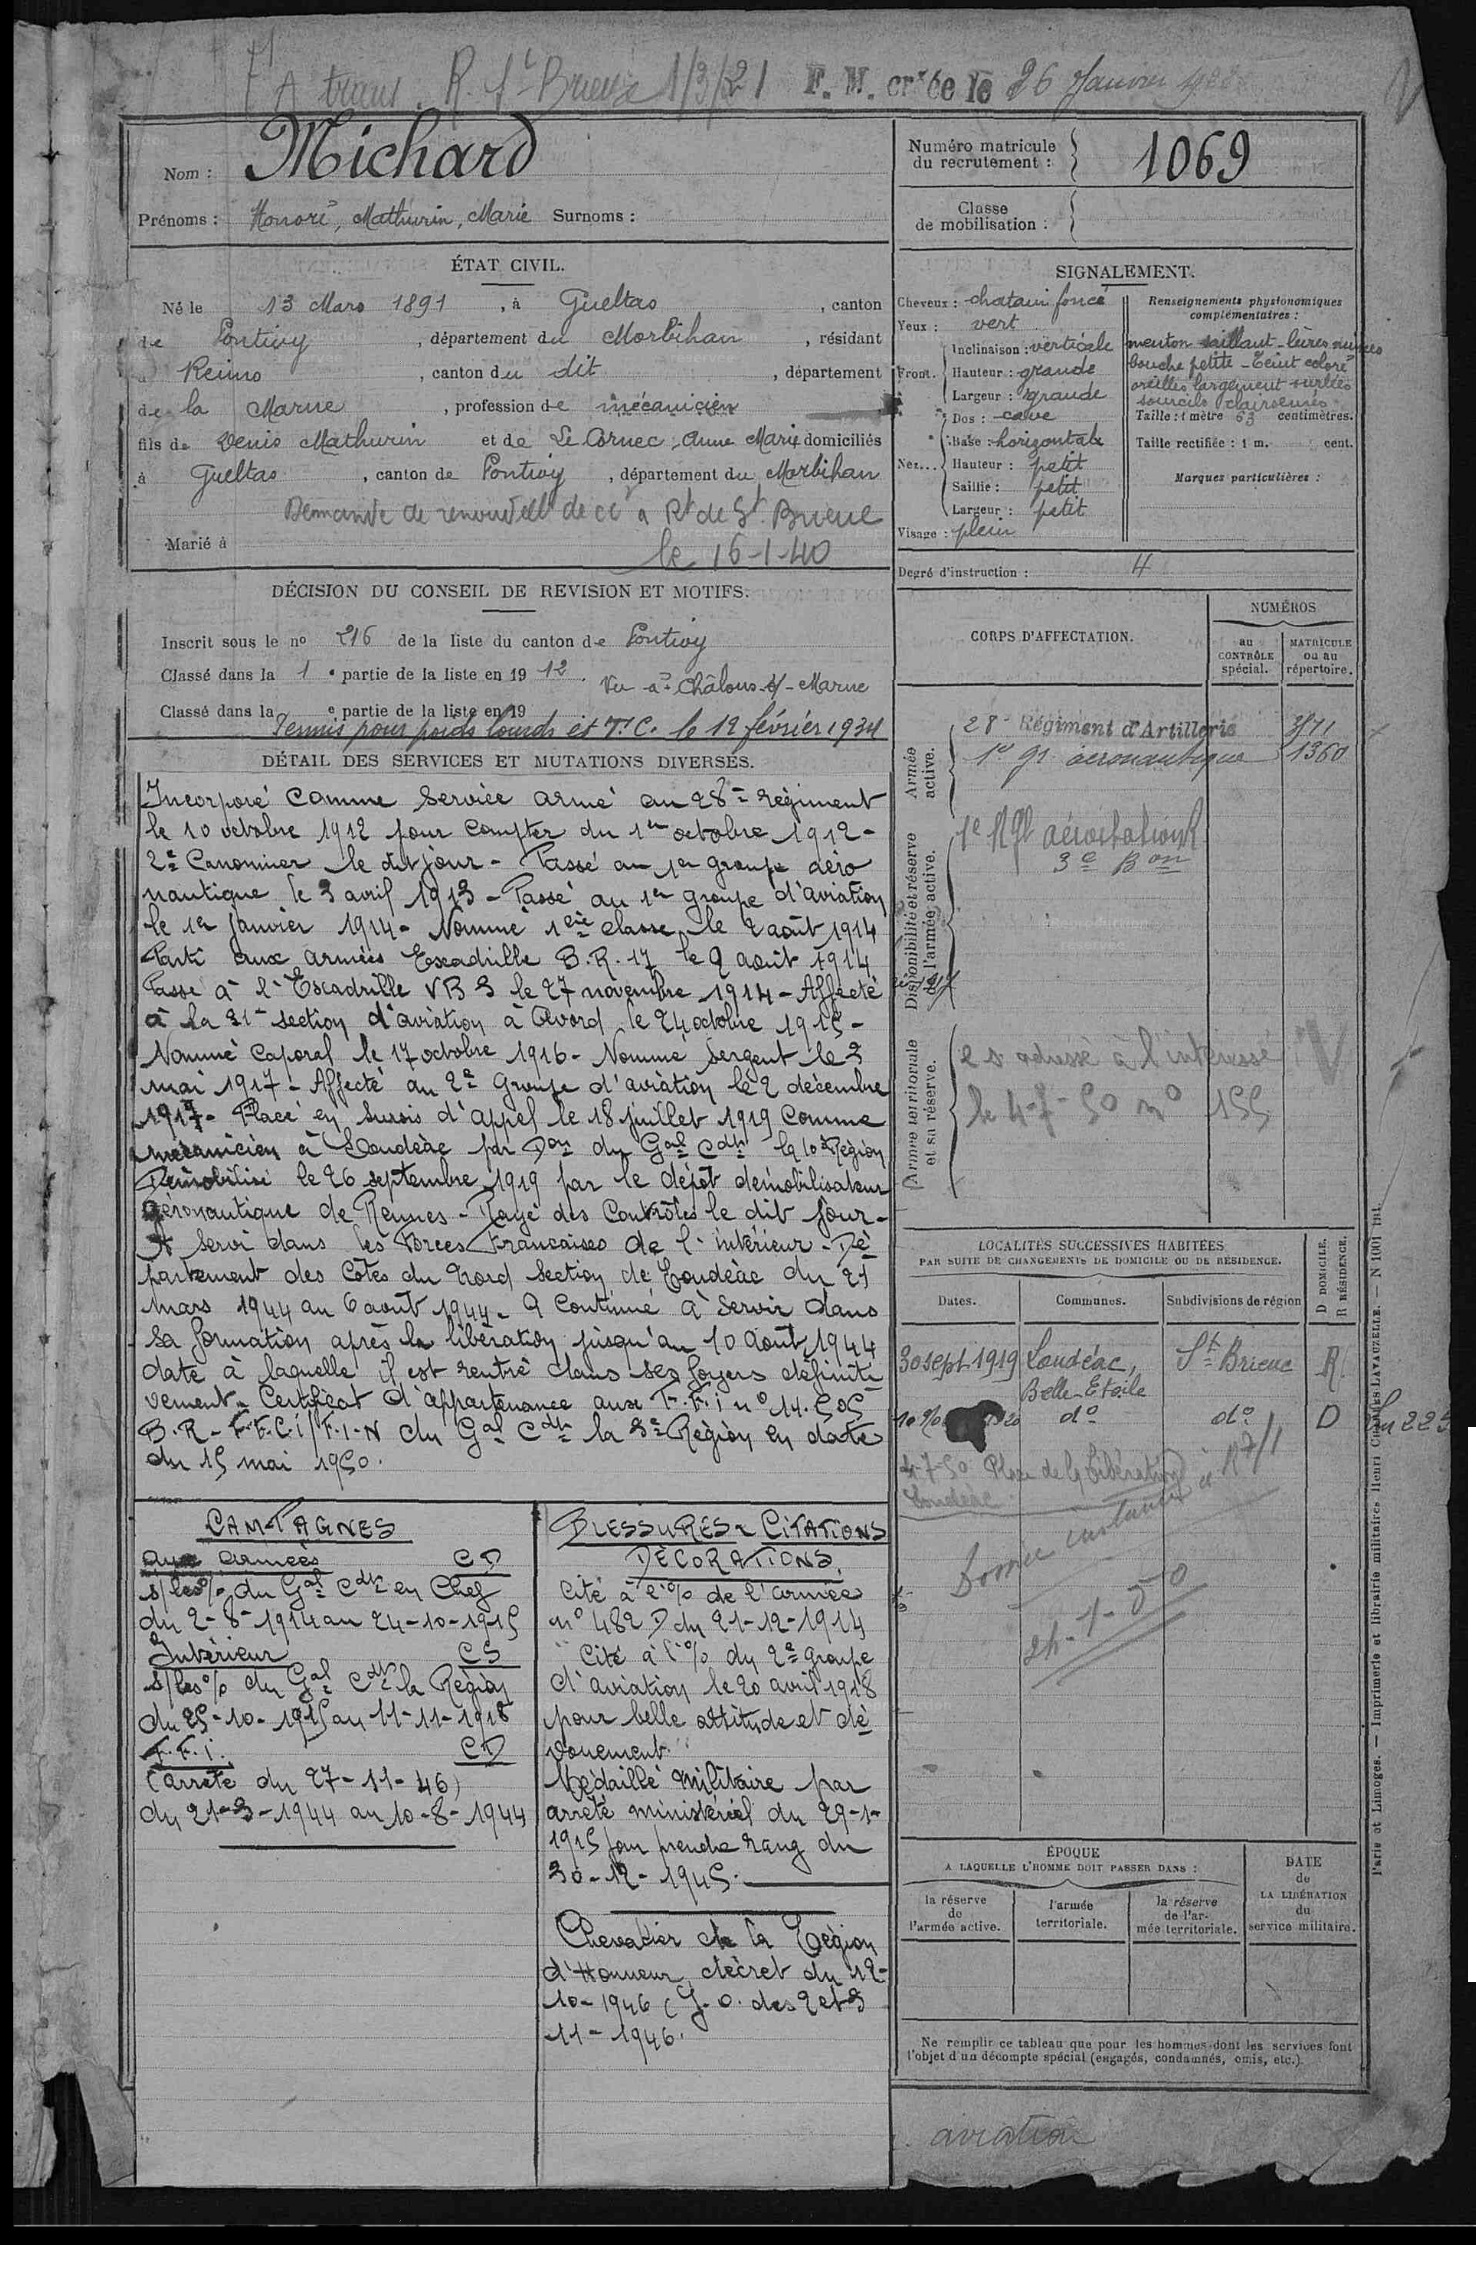 A trans. R. St Brieuc 1/3/21 F. M. créée le 26 Janvier
Nom : Michard
Prénoms : Honoré, Mathurin, Marie Surnoms :
Numéro matricule
du recrutement :
1069
Classe
de mobilisation :
ÉTAT CIVIL.
Né le 13 Mars 1891, à Gueltas, canton
de Pontivy, département du Morbihan, résidant
à Reims, canton du dit, département
de la Marne, profession de mécanicien
fils de Denis Mathurin et de Le Cornec, Anne Marie domiciliés
à Gueltas, canton de Pontivy, département du Morbihan
Demande de à Rt de St Brieuc
Marié à
le 16-1-40
SIGNALEMENT.
Cheveux : chatain foncé
Yeux : vert
Front. Inclinaison : verticale
Hauteur : grande
Largeur : grande
Nez... Dos : cave
Base : horizontale
Hauteur : petit
Saillie : petit
Largeur : petit
Visage : plein
Renseignements physionomiques
complémentaires :
menton saillant - lèvres minces
bouche petite - Teint coloré
oreilles largement ourlées
sourcils clairsemés
Taille : 1 mètre 63 centimètres.
Taille rectifiée : 1 m. cent.
Marques particulières :
Degré d'instruction : 4
DÉCISION DU CONSEIL DE REVISION ET MOTIFS.
Inscrit sous le no 216 de la liste du canton de Pontivy
Classé dans la 1e partie de la liste en 1912.
Vu à Châlons-s/-Marne
Classé dans la e partie de la liste en 19
Permis pour poids lourds et T.C. le 12 février 1934
DÉTAIL DES SERVICES ET MUTATIONS DIVERSES.
Incorporé comme service armé au 28e régiment
le 10 octobre 1912 pour compter du 1er octobre 1912 -
2e Canonnier le dit jour - Passé au 1er groupe aéro
nautique le 3 avril 1913 - Passé au 1er groupe d'aviation
le 1er janvier 1914 - Nommé 1ère classe le 2 août 1914
Parti aux armées Escadrille B.R. 17 le 9 août 1914
Passé à l'Escadrille VB 3 le 27 novembre 1914 - Affecté
à la 21e section d'aviation à Avord le 24 octobre 1915 -
Nommé Caporal le 17 octobre 1916 - Nommé Sergent le 3
mai 1917 - Affecté au 2e Groupe d'aviation le 2 décembre
1917 - Placé en sursis d'appel le 18 juillet 1919 comme
mécanicien à Loudéac par Don du Gal Cdt la 10e Région
Démobilisé le 26 septembre 1919 par le dépôt démobilisateur
Aéronautique de Rennes - Rayé des Contrôles le dit jour -
A servi dans les Forces Françaises de l'intérieur - Dé
partement des Côtes du Nord Section de Loudéac du 21
mars 1944 au 6 août 1944 - A continué à servir dans
sa formation après la libération jusqu'au 10 août 1944
date à laquelle il est rentré dans ses foyers définiti
vement - Certificat d'appartenance aux F.F.i no 14.505
B.R - F.F.C.i / F.I.N du Gal Cdt la 3e Région en date
du 15 mai 1950.
CORPS D'AFFECTATION.
NUMÉROS
au
CONTRÔLE
spécial.
MATRICULE
ou au
répertoire.
Armée
active.
28e Régiment d'Artillerie
1er gr aéronautique 1360
Disponibilité et réserve
de l'armée active.
1e Rgt aérostation
3e Bon
Armée territoriale
et sa réserve.
e s adressé à l'intéressé
le 4-7-50 no 155
LOCALITÉS SUCCESSIVES HABITÉES
PAR SUITE DE CHANGEMENTS DE DOMICILE OU DE RÉSIDENCE.
D DOMICILE.
R RÉSIDENCE.
Dates. Communes. Subdivisions de région
30 sept 1919 Loudéac, St Brieuc R
Belle-Etoile
do do D
4-7-50 Place de la Libération
Loudéac
24-1-50
CAMPAGNES
aux armées CD
s/les o/o du Gal Cdt en Chef
du 2-8-1914 au 24-10-1915
Intérieur CS
s/les o/o du Gal Cdt la Région
du 25-10-1915 au 11-11-1918
F.F.i. CD
(arrêté du 27-11-46)
du 21-3-1944 au 10-8-1944
BLESSURES - CITATIONS
DÉCORATIONS
Cité à l'o/o de l'armée
no 482 D du 21-12-1914
Cité à l'o/o du 2e groupe
d'aviation le 20 avril 1918
"pour belle attitude et dé
vouement"
Médaille Militaire par
arrêté ministériel du 29-1-
1915 pour prendre rang du
30-12-1945.
Chevalier de la Légion
d'Honneur, décret du 12-
10-1946 (J.O. des 2 et 3
11-1946.
ÉPOQUE
A LAQUELLE L'HOMME DOIT PASSER DANS :
la réserve
de
l'armée active.
l'armée
territoriale.
la réserve
de l'ar-
mée territoriale.
DATE
de
LA LIBÉRATION
du
service militaire.
Ne remplir ce tableau que pour les hommes dont les services font
l'objet d'un décompte spécial (engagés, condamnés, omis, etc.).
aviation
Paris et Limoges. — Imprimerie et librairie militaires Henri CHARLES-LAVAUZELLE. — N 1001 int.